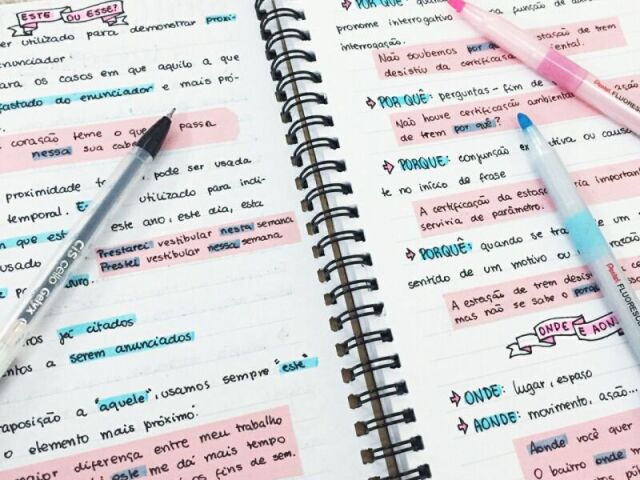 ESTE OU ESSE?
ser utilizado para demonstrar proxi-
enunciador.
para os casos em que aquilo a que
afastado do enunciador e mais pró-
coração teme o que passa
nessa sua
proximidade pode ser usada
temporal. utilizado para indi-
em que este ano, este dia, esta
usado Prestarei vestibular nesta semana
Prestei vestibular nessa semana
já citados
a serem anunciados
aposição a "aquele", usamos sempre "este"
o elemento mais próximo:
maior diferença entre meu trabalho
este me dá mais tempo
fins de sem.
POR QUE:
pronome interrogativo função de
interrogação.
Não soubemos por estação de trem
desistiu da
POR QUÊ: perguntas - fim de
Não houve certificação ambiental
de trem por quê?
PORQUE: conjunção ou causa
te no início de frase
A certificação da importan
serviria de parâmetro.
PORQUÊ: quando se um
sentido de um motivo ou
A estação de trem
mas não se sabe o
ONDE E
ONDE: lugar, espaço
AONDE: movimento, ação...
Aonde você quer
O bairro onde
CiS Cello Gelyx
Pentel FLUORESC
Pentel FLUORESC